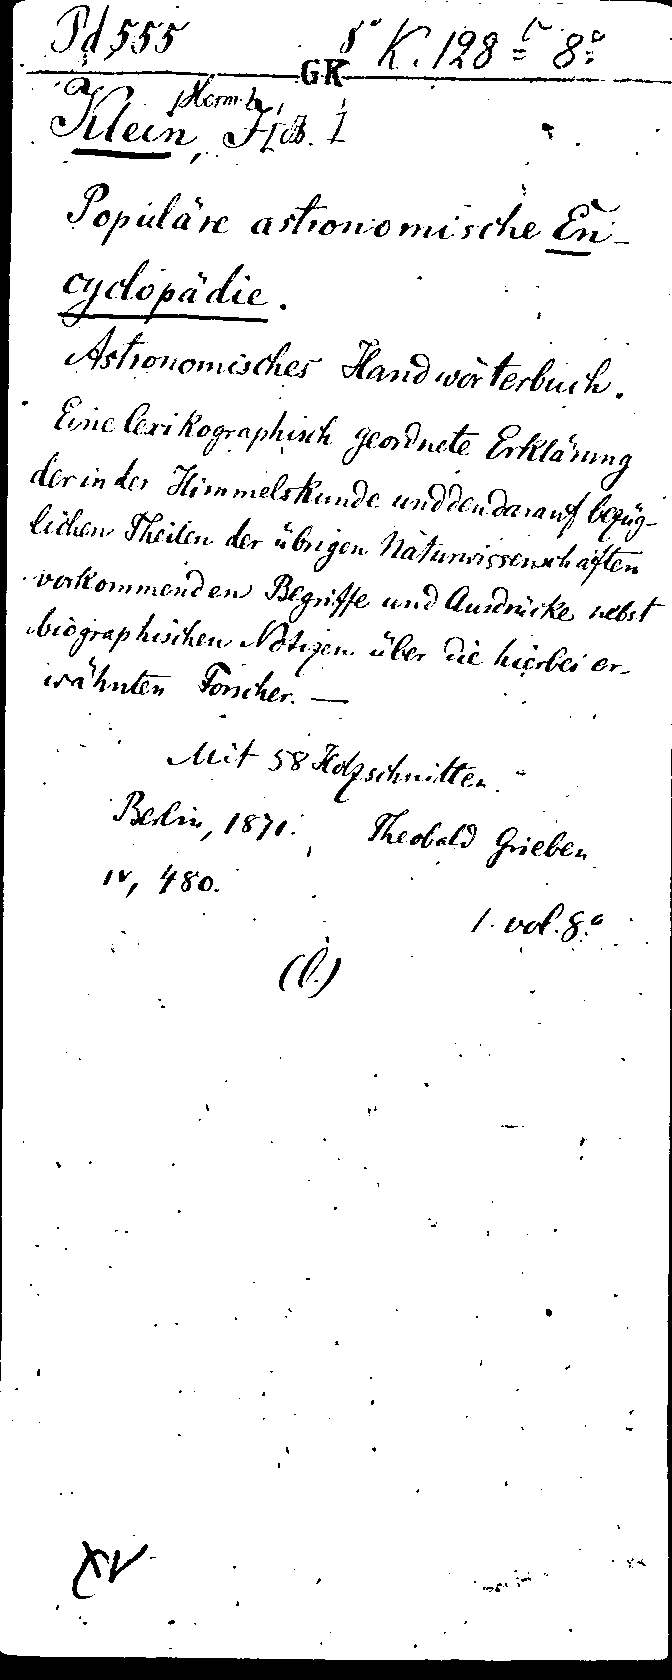 Pd 555
K. 128 8°
GK
Klein, Herm. J.
Populäre astronomische En-
cyclopädie.
Astronomisches Handwörterbuch.
Eine lexikographisch geordnete Erklärung
der in der Himmelskunde und den darauf bezüg-
lichen Theilen der übrigen Naturwissenschaften
vorkommenden Begriffe und Ausdrücke nebst
biographischen Notizen über die hierbei er-
wähnten Forscher. —
Mit 58 Holzschnitten.
Berlin, 1871. Theobald Grieben
IV, 480.
1. vol. 8.°
(l.)